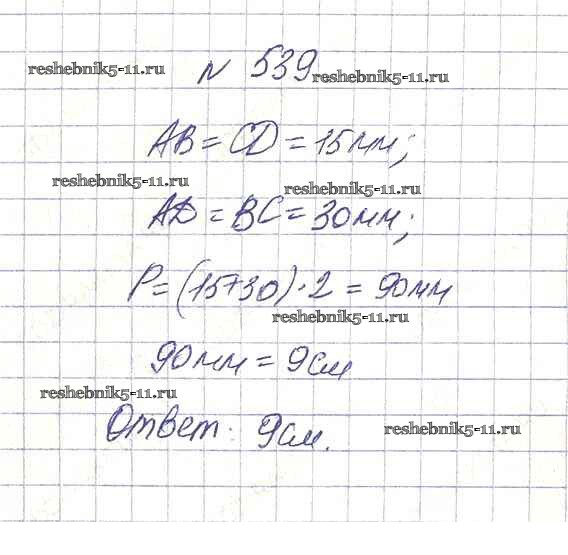 reshebnik5-11.ru
№ 539
reshebnik5-11.ru
AB = CD = 15мм;
reshebnik5-11.ru
reshebnik5-11.ru
AD = BC = 30мм;
P = (15+30)·2 = 90мм
reshebnik5-11.ru
90мм = 9см
reshebnik5-11.ru
Ответ: 9см.
reshebnik5-11.ru